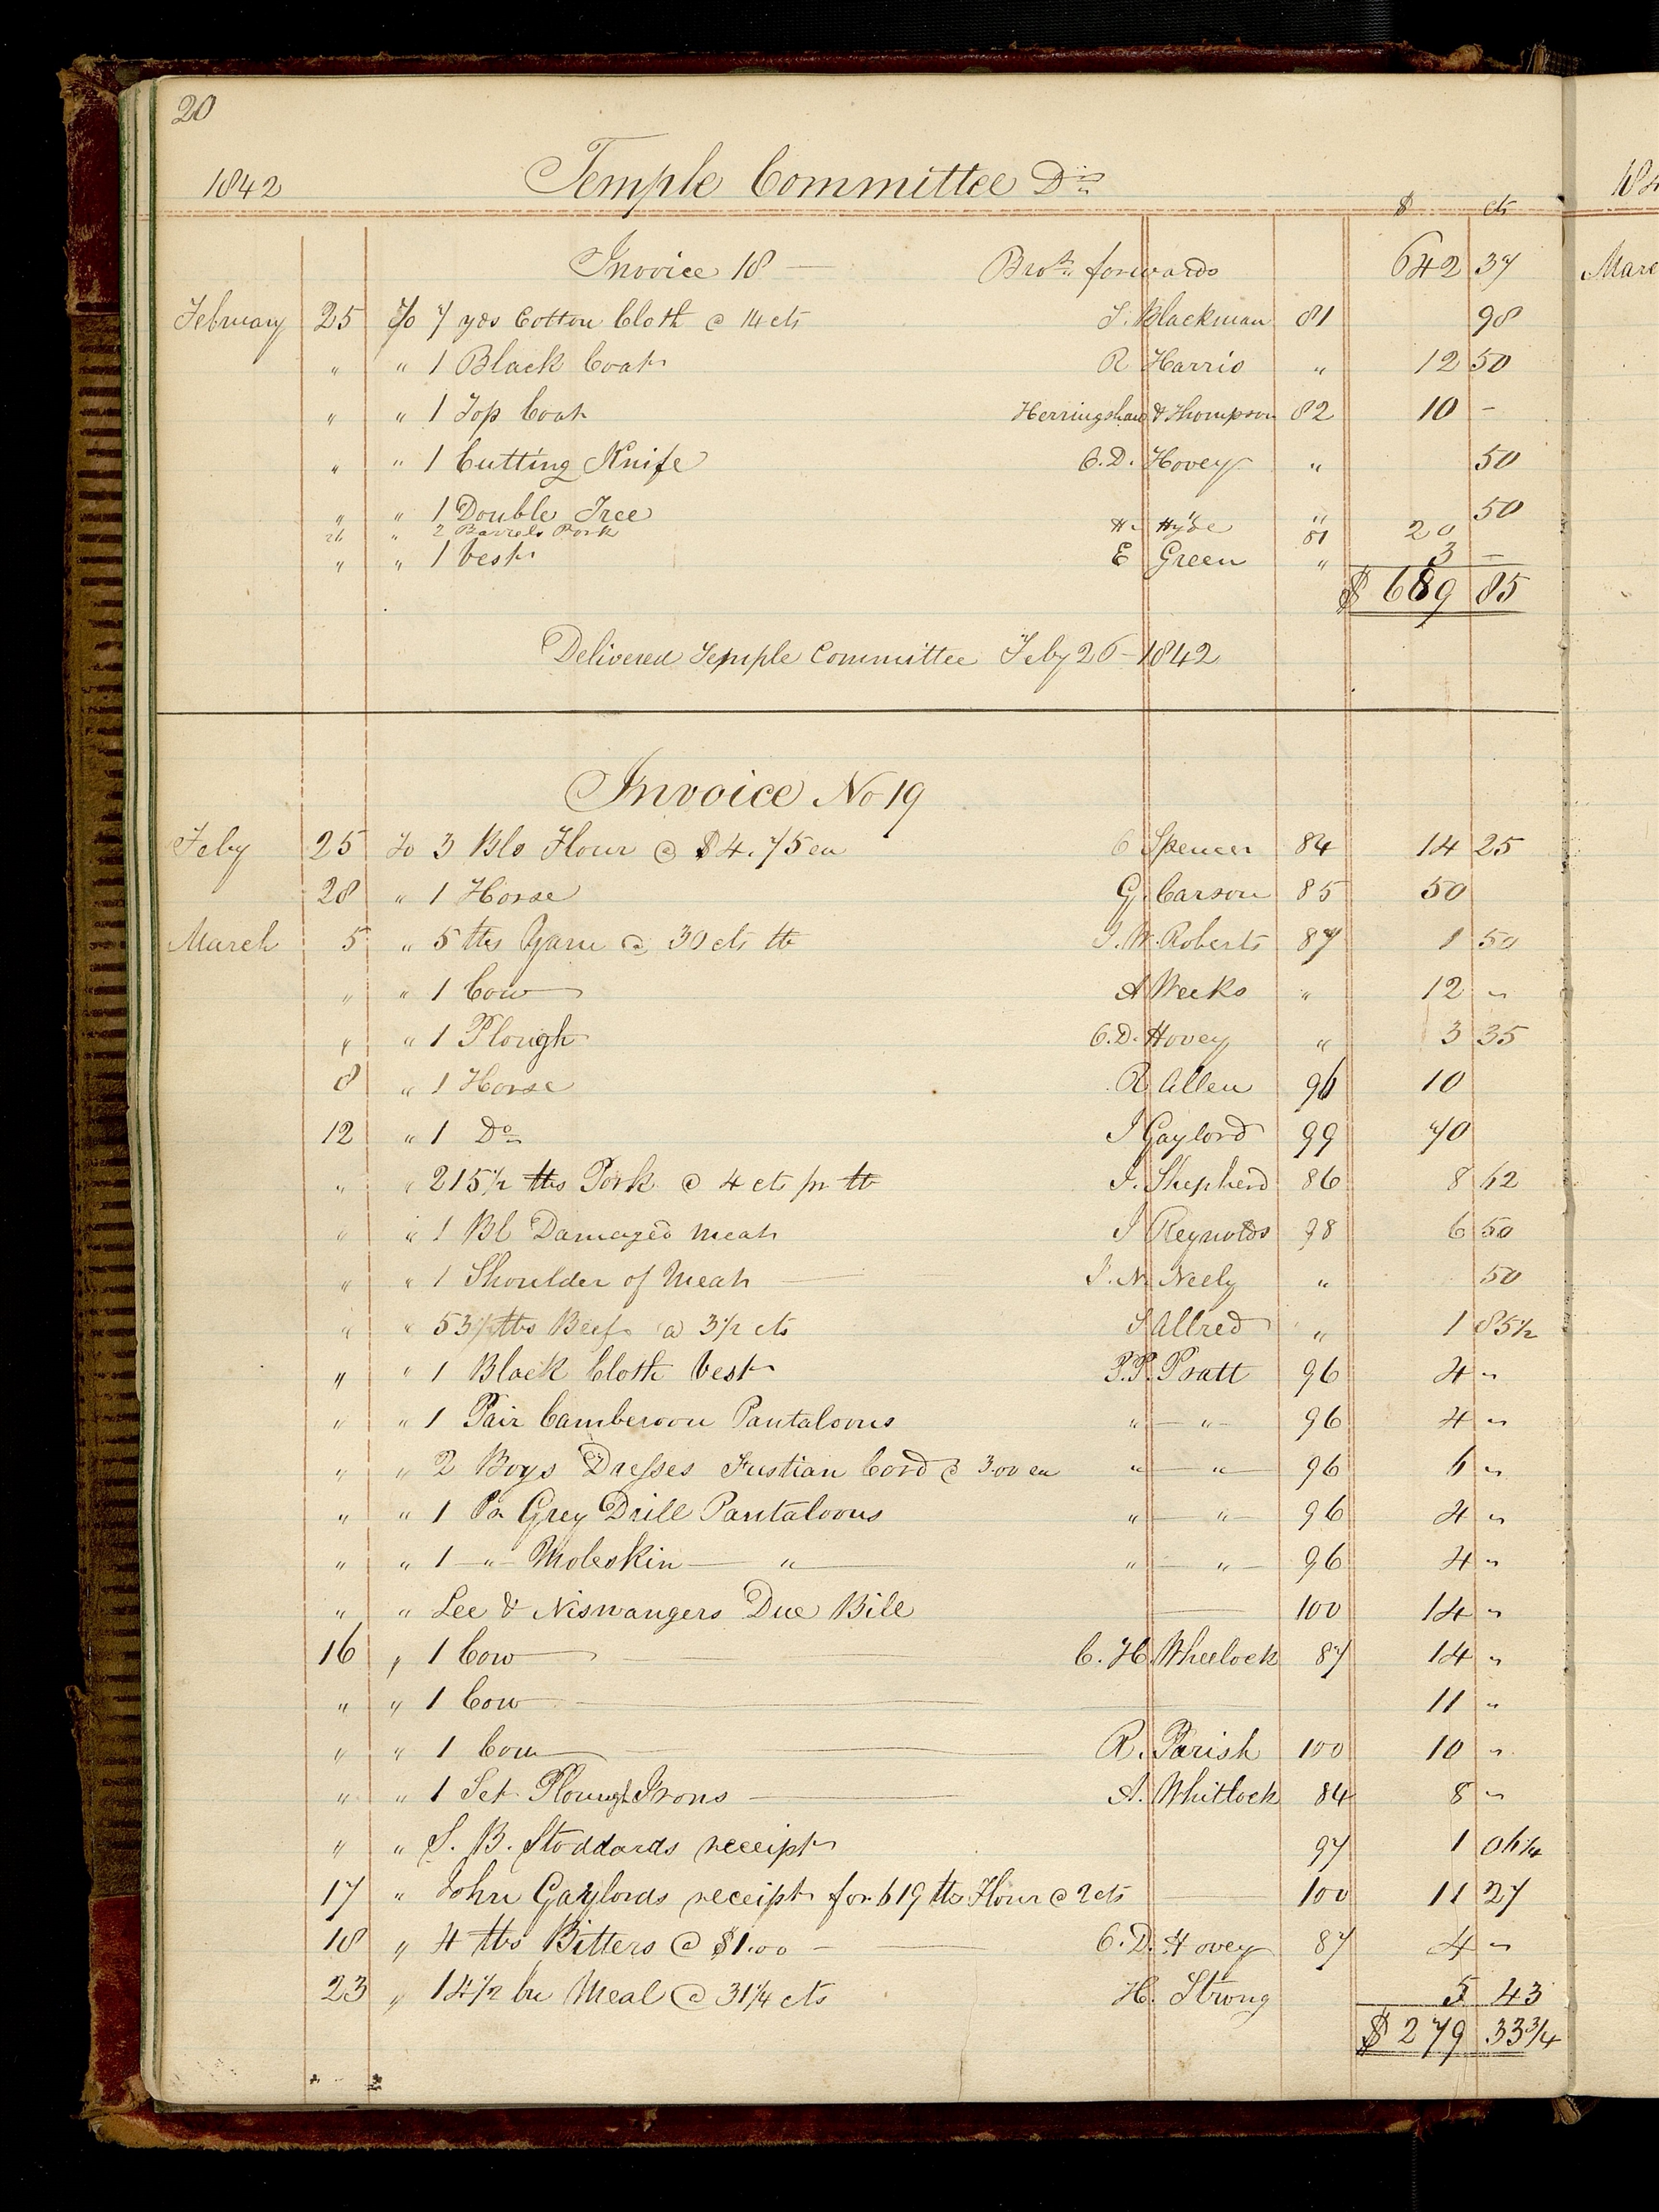 20
1842 Temple Committee Drs
$ cts
Invoice 18 — Brot. forwards 642 37
February 25 To 7 yds Cotton Cloth @ 14 cts S. Blackman 81 98
" " 1 Black Coat R Harris " 12 50
" " 1 Top Coat Herringshaw & Thompson 82 10 -
" " 1 Cutting Knife O. D. Hovey " 50
" " 1 Double Tree " " 50
26 " 2 Barrels Pork H. Hyde 81 20
" " 1 Vest E Green " 3 -
$ 689 85
Delivered Temple Committee Feby 26 - 1842
Invoice No 19
Feby 25 To 3 Bls Flour @ $4.75 ea O Spencer 84 14 25
28 " 1 Horse G. Carson 85 50
March 5 " 5 lbs Yarn @ 30 cts lb J. W. Roberts 87 1 50
" " 1 Cow A Weeks " 12 "
" " 1 Plough O. D. Hovey " 3 35
8 " 1 Horse R Allen 96 10
12 " 1 Do J Gaylord 99 70
" " 215 1/2 lbs Pork @ 4 cts pr lb J. Shepherd 86 8 62
" " 1 Bl Damaged Meat J Reynolds 98 6 50
" " 1 Shoulder of Meat — J. N. Neely " 50
" " 53 1/2 lbs Beef @ 3 1/2 cts J Allred " 1 85 1/2
" " 1 Black Cloth Vest P. P. Pratt 96 4 "
" " 1 Pair Camberoon Pantaloons " — " 96 4 "
" " 2 Boys Dresses Fustian Cord @ 3.00 ea " — " 96 6 "
" " 1 Pr Grey Drill Pantaloons " — " 96 4 "
" " 1 — " — Moleskin — " — " — " — 96 4 "
" " Lee & Niswangers Due Bill — 100 14 "
16 " 1 Cow — C. H. Wheelock 87 14 "
" " 1 Cow — 11 "
" " 1 Cow — R. Parish 100 10 "
" " 1 Set Plough Irons — A. Whitlock 84 8 "
" " S. B. Stoddards receipt 97 1 06 1/4
17 " John Gaylords receipt for 619 lbs Flour @ 2 cts — 100 11 27
18 " 4 lbs Bitters @ $1.00 — O. D. Hovey 87 4 "
23 " 14 1/2 bu Meal @ 31 1/4 cts H. Strong 5 43
$ 279 33 3/4
184
Marc